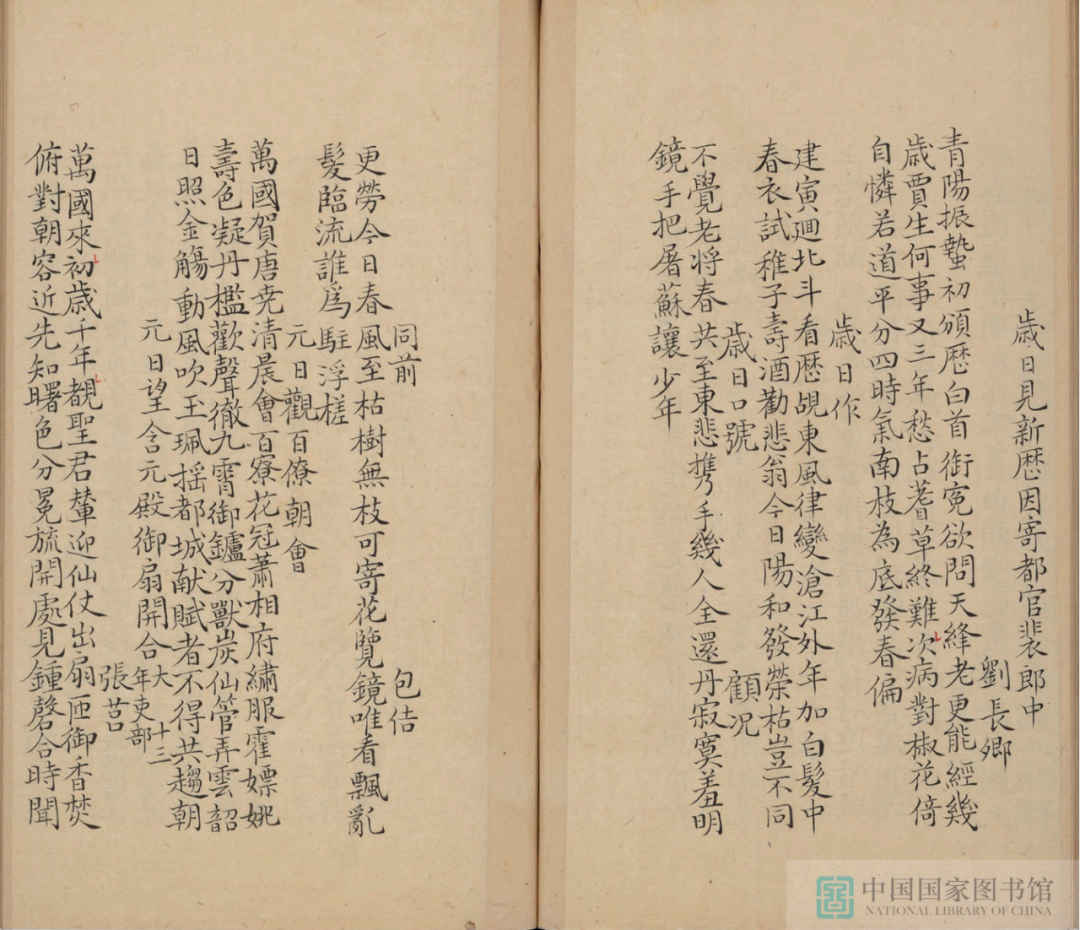 歳日見新歴因寄都官裴郎中
劉長卿
青陽振蟄初頒歴白首銜寃欲問天絳老更能經幾
歳賈生何事又三年愁占蓍草終難次病對椒花倍
自憐若道平分四時氣南枝為底發春偏
歳日作
建寅廻北斗看歴覘東風律變滄江外年加白髮中
春衣試稚子壽酒勸悲翁今日陽和發榮枯豈不同
歳日口號
顧况
不覺老將春共至東悲携手幾人全還丹寂寞羞明
鏡手把屠蘇讓少年
同前
包佶
更勞今日春風至枯樹無枝可寄花覽鏡唯看飄亂
髮臨流誰爲駐浮槎
元日觀百僚朝會
萬國賀唐尭清晨會百寮花冠蕭相府繡服霍嫖姚
壽色凝丹檻歡聲徹九霄御鑪分獸炭仙管弄雲韶
日照金觴動風吹玉珮揺都城献賦者不得共趨朝
元日望含元殿御扇開合
大十三
年吏部
張莒
萬國來初歳千年覩聖君輦迎仙仗出扇匝御香焚
俯對朝容近先知曙色分冕旒開處見鍾磬合時聞
中国国家图书馆
NATIONAL LIBRARY OF CHINA